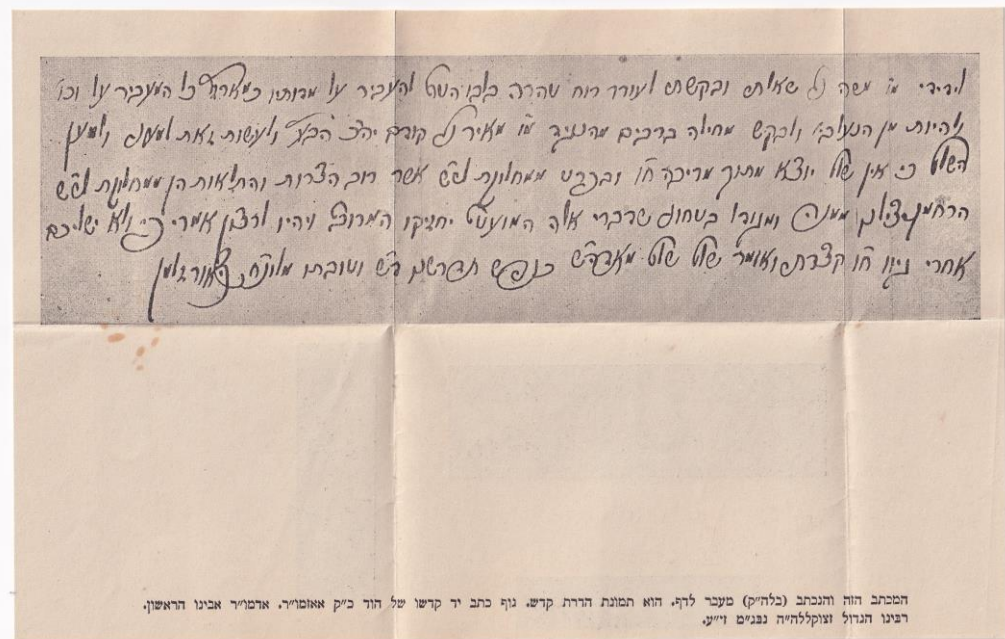 לידידי מו׳ משה נ״י שאלתי ובקשתי לעורר רוח טהרה בלבו הטוב להעביר על מדותיו כמארז״ל כל המעביר על וכו׳
ולהיות מן הנעלבי׳ ולבקש מחילה ברבים מהנגיד מו׳ מאיר נ״י קודם יהכ״פ הבע״ל ולעשות זאת למענם ולמען
השלום כי אין שלום יוצא מתוך מריבה ח״ו ובפרט ממחלוקת לש״ש אשר רוב הצרות והתלאות הן ממחלוקת לש״ש
הרחמן יצילנו ממנה ומנורו בטחוני שדברי אלה המועטים יחזיקו המרובה ויהיו לרצון אמרי פי ולא ישליכם
אחרי גיוו ח״ו קצרתי ואומר שלום שלום מאדה״ש כנפש תדרשם ר״ש וטובתו מלונ״ח שניאור זלמן
המכתב הזה והנכתב (בלה״ק) מעבר לדף. הוא תמונת הדרת קדש. גוף כתב יד קדשו של הוד כ״ק אאזמו״ר. אדמו״ר אבינו הראשון.
רבינו הגדול זצוקללה״ה נבג״מ זי״ע.